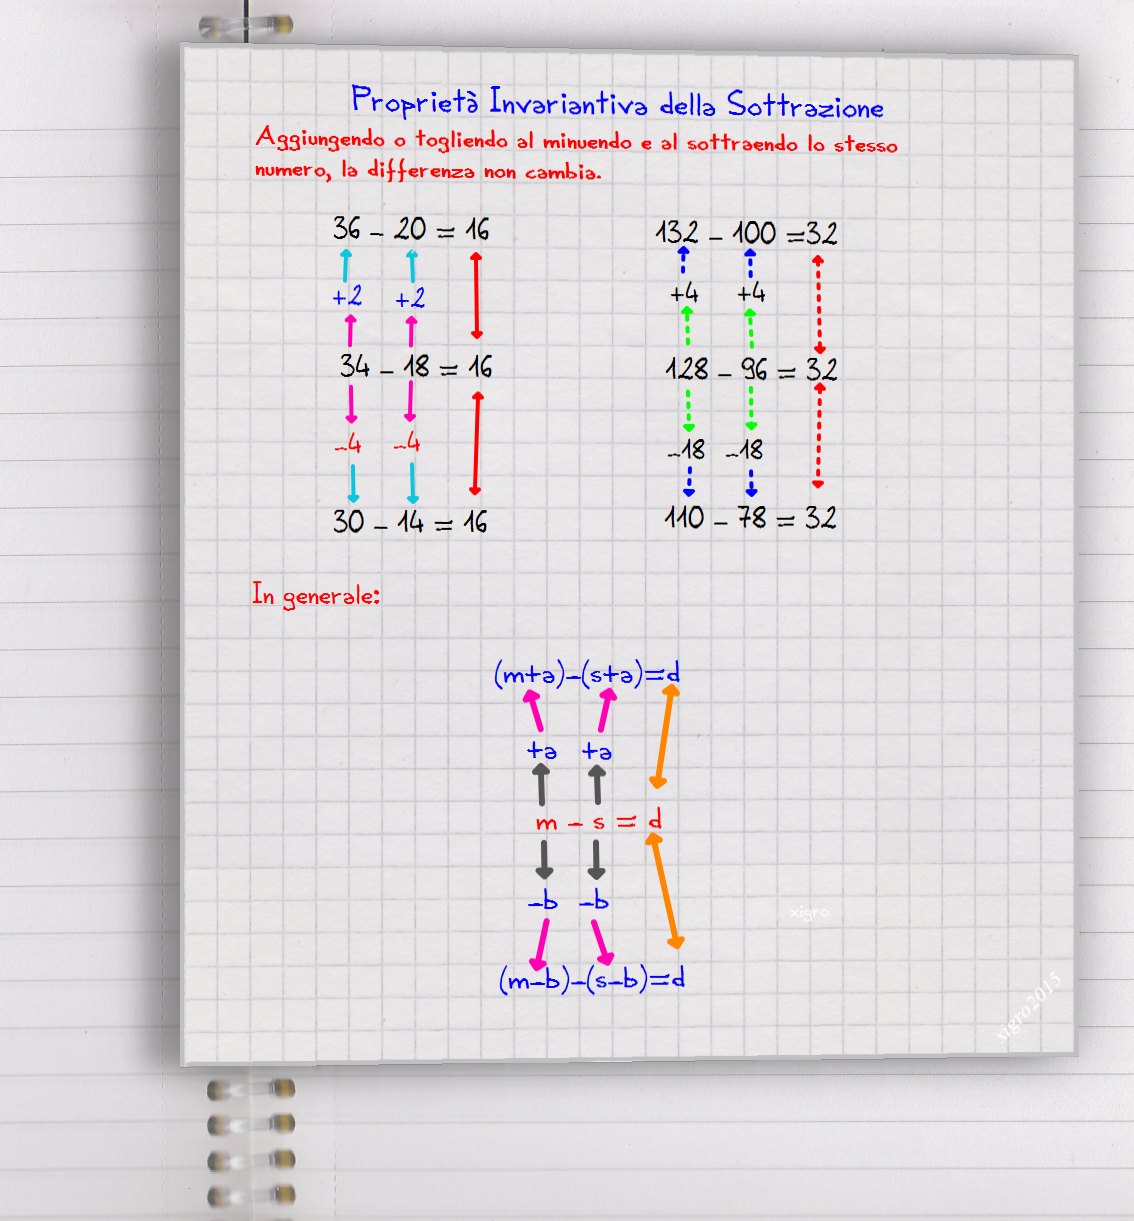 Proprietà Invariantiva della Sottrazione
Aggiungendo o togliendo al minuendo e al sottraendo lo stesso
numero, la differenza non cambia.
36 – 20 = 16
+2 +2
34 – 18 = 16
–4 –4
30 – 14 = 16
132 – 100 =32
+4 +4
128 – 96 = 32
–18 –18
110 – 78 = 32
In generale:
(m+a)–(s+a)=d
+a +a
m – s = d
–b –b
(m–b)–(s–b)=d
xigro
xigro2015